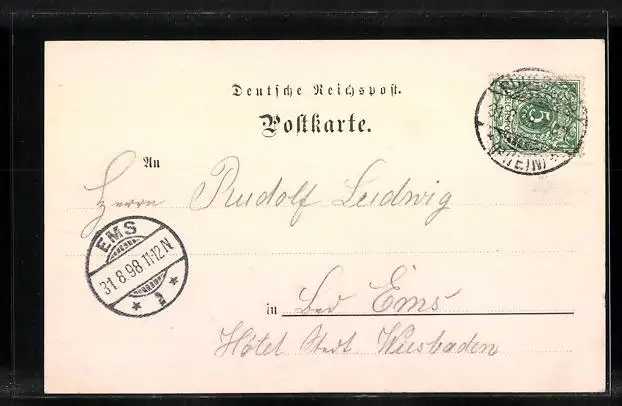 Deutsche Reichspost.
Postkarte.
An
Herrn Rudolf Ludwig
EMS
31.8.98.11-12N
in Bad Ems
Hôtel Stadt Wiesbaden
5
(RHEIN)